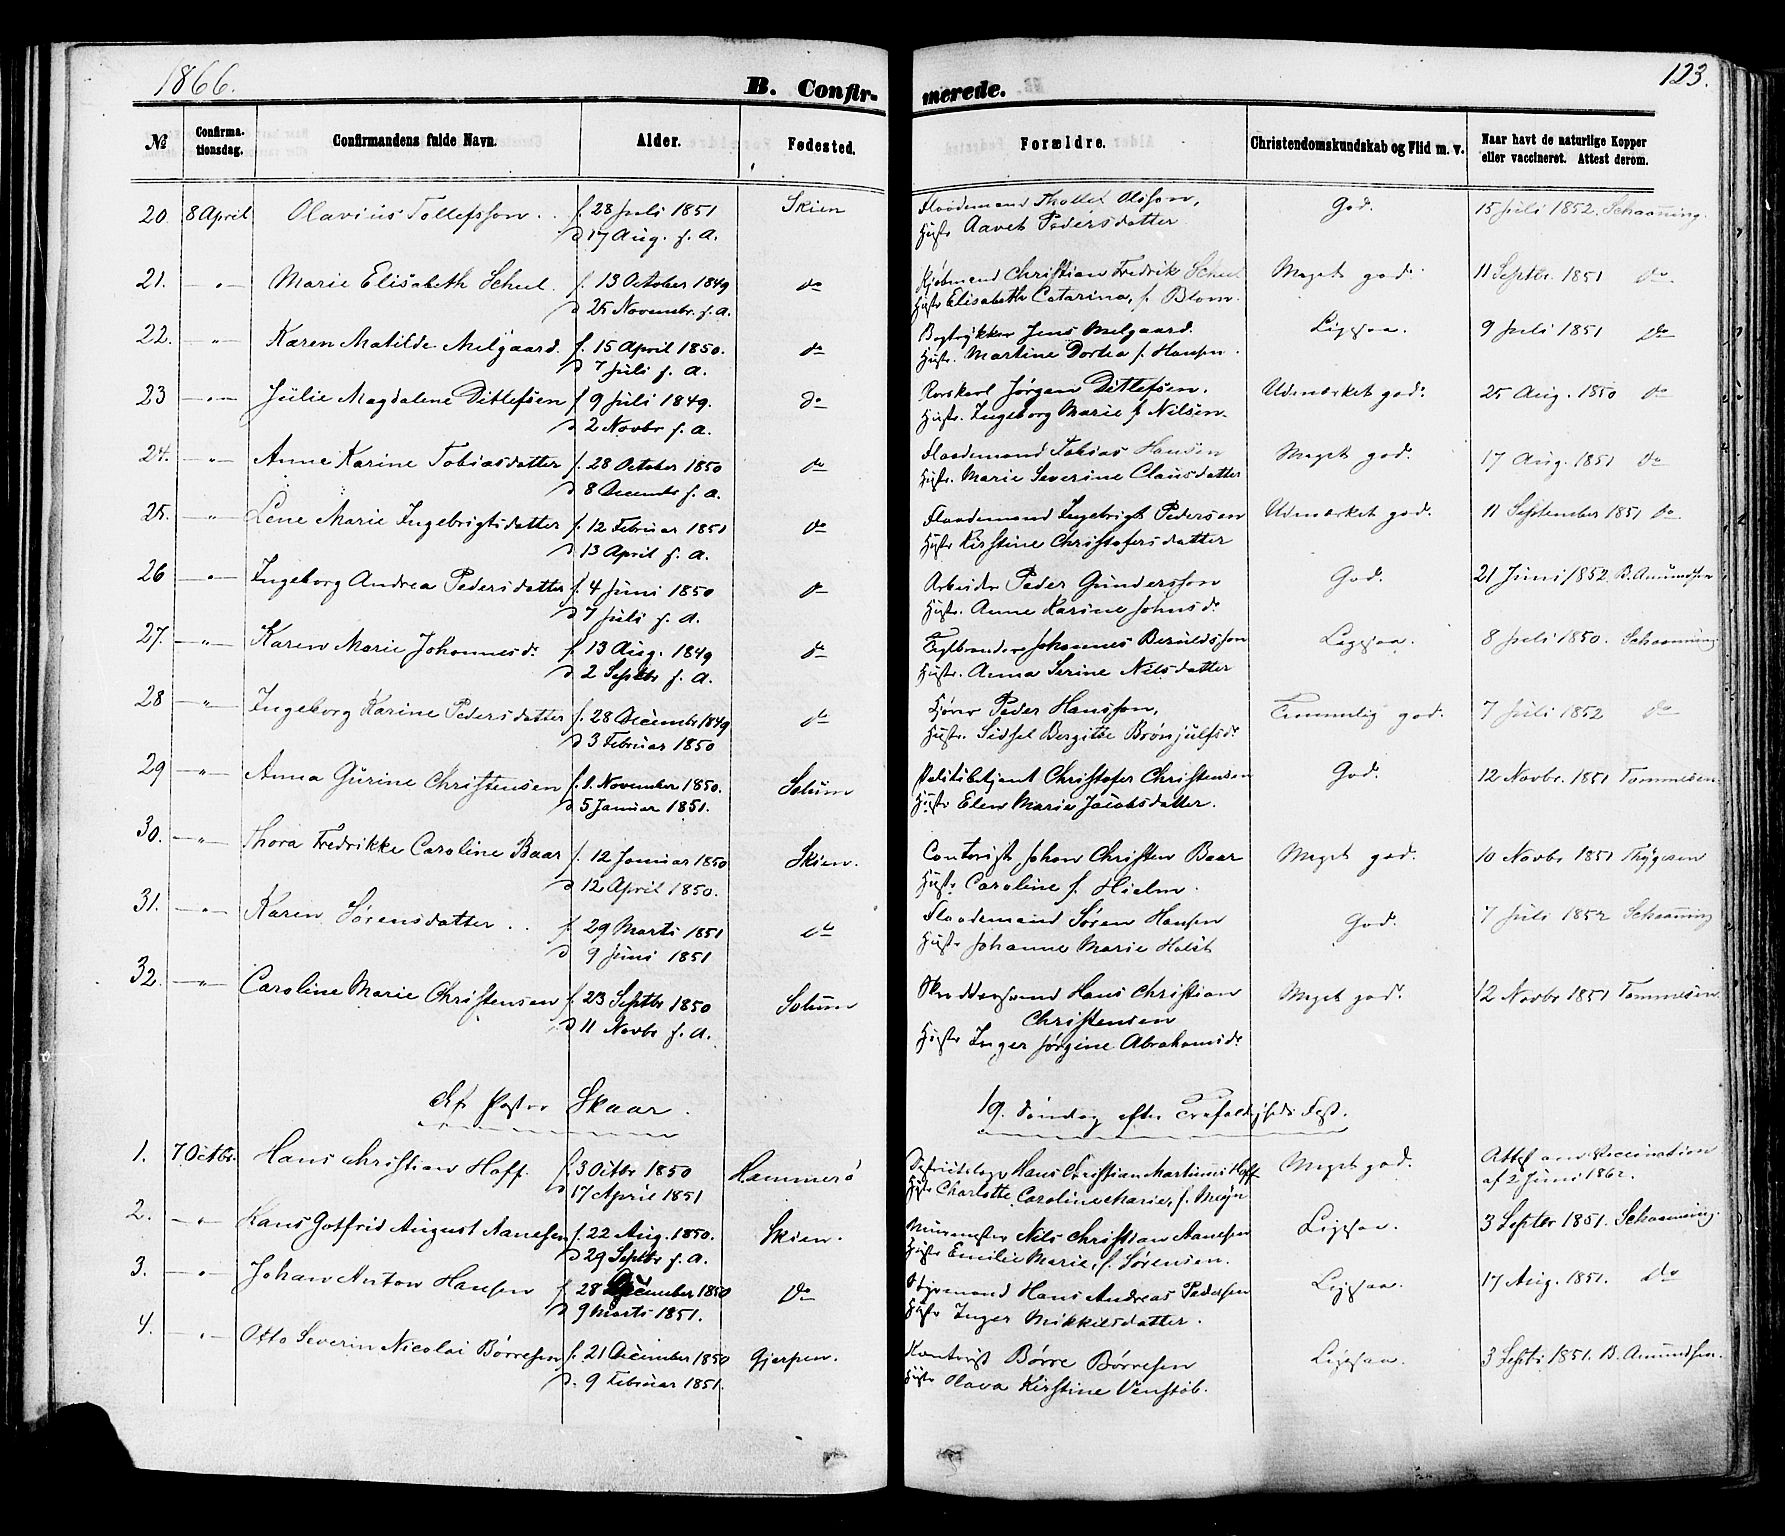 1866.
B. Confir-
merede.
123.
№ Confirma-tionsdag. Confirmandens fulde Navn. Alder. Fødested. Forældre. Christendomskundskab og Flid m. v. Naar havt de naturlige Kopper eller vaccineret. Attest derom.
20. 8 April Olavius Tollefsson. f. 28 Juli 1851 Skien Flaademand Thollef Olsson, God. 15 Juli 1852. Schaanning.
d 17 Aug. s. A. Hustr Aavet Pedersdatter
21. — " — Marie Elisabeth Scheel. f. 13 October 1849 do Kjøbmand Christian Fredrik Scheel Meget god. 11 Septbr. 1851 do
d 25 Novembr. s. A. Hustr Elisabeth Catarina, f. Blom.
22. — " — Karen Matilde Melgaard. f. 15 April 1850. do Bogtrykker Jens Melgaard. Ligesaa. 9 Juli 1851 do
d 7 Juli s. A. Hustr. Martine Dortea f. Hansen.
23 — " — Julie Magdalene Ditlefsen f 9 Juli 1849. do Rorskarl Jørgen Ditlefsen. Udmærket god. 25 Aug. 1850 do
d 2 Novbr s. A. Hustr. Ingeborg Marie f Nilsen.
24. — " — Anne Karine Tobiasdatter f. 28 October 1850 do Flaademand Tobias Hansen Meget god. 17 Aug. 1851 do
d 8 Decembr s. A. Hustr. Marie Severine Clausdatter
25. — " — Lene Marie Ingebrigtsdatter f. 12 Februar 1851 do Flaademand Ingebrigt Pedersen Udmærket god. 11 September 1851 do
d 13 April s. A. Hustr Kirstine Christofersdatter
26 — " — Ingeborg Andrea Pedersdatter f. 4 Juni 1850 do Arbeider Peder Gundersson God. 21 Juni 1852. B. Amundsen
d 7 Juli s. A. Hustr. Anne Karine Johnsd.
27. — " — Karen Marie Johannesd. f 13 Aug. 1849 do Teglbrænder Johannes Beruldsson Ligesaa. 8 Juli 1850. Schaanning
d 2 Septbr s. A. Hustr. Anna Serine Nilsdatter
28 — " — Ingeborg Karine Pedersdatter f. 28 Decembr 1849 do Peder Hansson, Temmelig god. 7 Juli 1852 do
d 3 Februar 1850 Hustr. Sidsel Bergitte Brønjulfsd.
29 — " — Anna Gurine Christensen f. 1. November 1850. Solum Politibetjent Christofer Christensen God. 12 Novbr. 1851 Tommesen
d 5 Januar 1851. Hustr Elen Marie Jacobsdatter.
30. — " — Thora Fredrikke Caroline Baar f. 12 Januar 1850 Skien. Contorist Johan Christen Baar Meget god. 10 Novbr 1851 Thygesen
d 12 April 1850. Hustr Caroline f. Hielm.
31. — " — Karen Sørensdatter f. 29 Marts 1851 do Flaademand Søren Hansen God. 7 Juli 1852 Schaanning
d 9 Juni 1851 Hustr Johanne Marie Holst
32. — " — Caroline Marie Christensen f. 23 Septbr 1850 Solum Skræddersvend Hans Christian Meget god. 12 Novbr 1851 Tommesen
Christensen
d 11 Novbr s. A. Hustr Inger Jørgine Abrahamsd.
Af Pastor Skaar. 19. Søndag efter Trefoldigheds Fest.
1. 7 Octbr. Hans Christian Hoff. f. 3 Octbr 1850 Hammerø Distriktslæge Hans Christian Martinus Hoff Meget god. Attest om Vaccination
d 17 April 1851 Hustr Charlotte Caroline Marie, f. Meyn af 2 Juni 1862.
2. — " — Hans Gotfrid August Aanesen f. 22 Aug. 1850. Skien. Muurmester Nils Christian Aanesen Ligesaa. 3 Septbr 1851. Schaanning.
d 29 Septbr s. A. Hustr Emilie Marie, f. Sørensen.
3. — " — Johan Anton Hansen f. 28 December 1850 do Hans Andreas Pedersen Ligesaa. 17 Aug. 1851. do
d 9 Marts 1851. Hustr Inger Mikkelsdatter.
4. — " — Otto Severin Nicolai Børresen f. 21 December 1850 Gjerpen. Kontorist Børre Børresen Ligesaa. 3 Septb. 1851. B. Amundsen.
d. 9 Februar 1851. Hustr Olava Kirstine Venstøb.